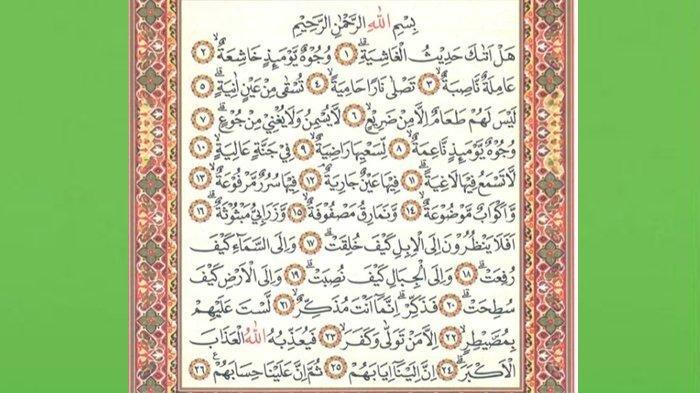 بِسْمِ اللهِ الرَّحْمٰنِ الرَّحِيْمِ
هَلْ اَتٰىكَ حَدِيْثُ الْغَاشِيَةِۗ ١ وُجُوْهٌ يَّوْمَىِٕذٍ خَاشِعَةٌ ۙ ٢
عَامِلَةٌ نَّاصِبَةٌ ۙ ٣ تَصْلٰى نَارًا حَامِيَةً ۙ ٤ تُسْقٰى مِنْ عَيْنٍ اٰنِيَةٍ ۗ ٥
لَيْسَ لَهُمْ طَعَامٌ اِلَّا مِنْ ضَرِيْعٍۙ ٦ لَّا يُسْمِنُ وَلَا يُغْنِيْ مِنْ جُوْعٍۗ ٧
وُجُوْهٌ يَّوْمَىِٕذٍ نَّاعِمَةٌ ۙ ٨ لِّسَعْيِهَا رَاضِيَةٌ ۙ ٩ فِيْ جَنَّةٍ عَالِيَةٍۙ ١٠
لَّا تَسْمَعُ فِيْهَا لَاغِيَةً ۗ ١١ فِيْهَا عَيْنٌ جَارِيَةٌ ۘ ١٢ فِيْهَا سُرُرٌ مَّرْفُوْعَةٌ ۙ ١٣
وَّاَكْوَابٌ مَّوْضُوْعَةٌ ۙ ١٤ وَّنَمَارِقُ مَصْفُوْفَةٌ ۙ ١٥ وَّزَرَابِيُّ مَبْثُوْثَةٌ ۗ ١٦
اَفَلَا يَنْظُرُوْنَ اِلَى الْاِبِلِ كَيْفَ خُلِقَتْۗ ١٧ وَاِلَى السَّمَاۤءِ كَيْفَ
رُفِعَتْۗ ١٨ وَاِلَى الْجِبَالِ كَيْفَ نُصِبَتْۗ ١٩ وَاِلَى الْاَرْضِ كَيْفَ
سُطِحَتْۗ ٢٠ فَذَكِّرْۗ اِنَّمَآ اَنْتَ مُذَكِّرٌۗ ٢١ لَسْتَ عَلَيْهِمْ
بِمُصَۜيْطِرٍۙ ٢٢ اِلَّا مَنْ تَوَلّٰى وَكَفَرَۙ ٢٣ فَيُعَذِّبُهُ اللهُ الْعَذَابَ
الْاَكْبَرَۗ ٢٤ اِنَّ اِلَيْنَآ اِيَابَهُمْ ٢٥ ثُمَّ اِنَّ عَلَيْنَا حِسَابَهُمْ ࣖ ٢٦